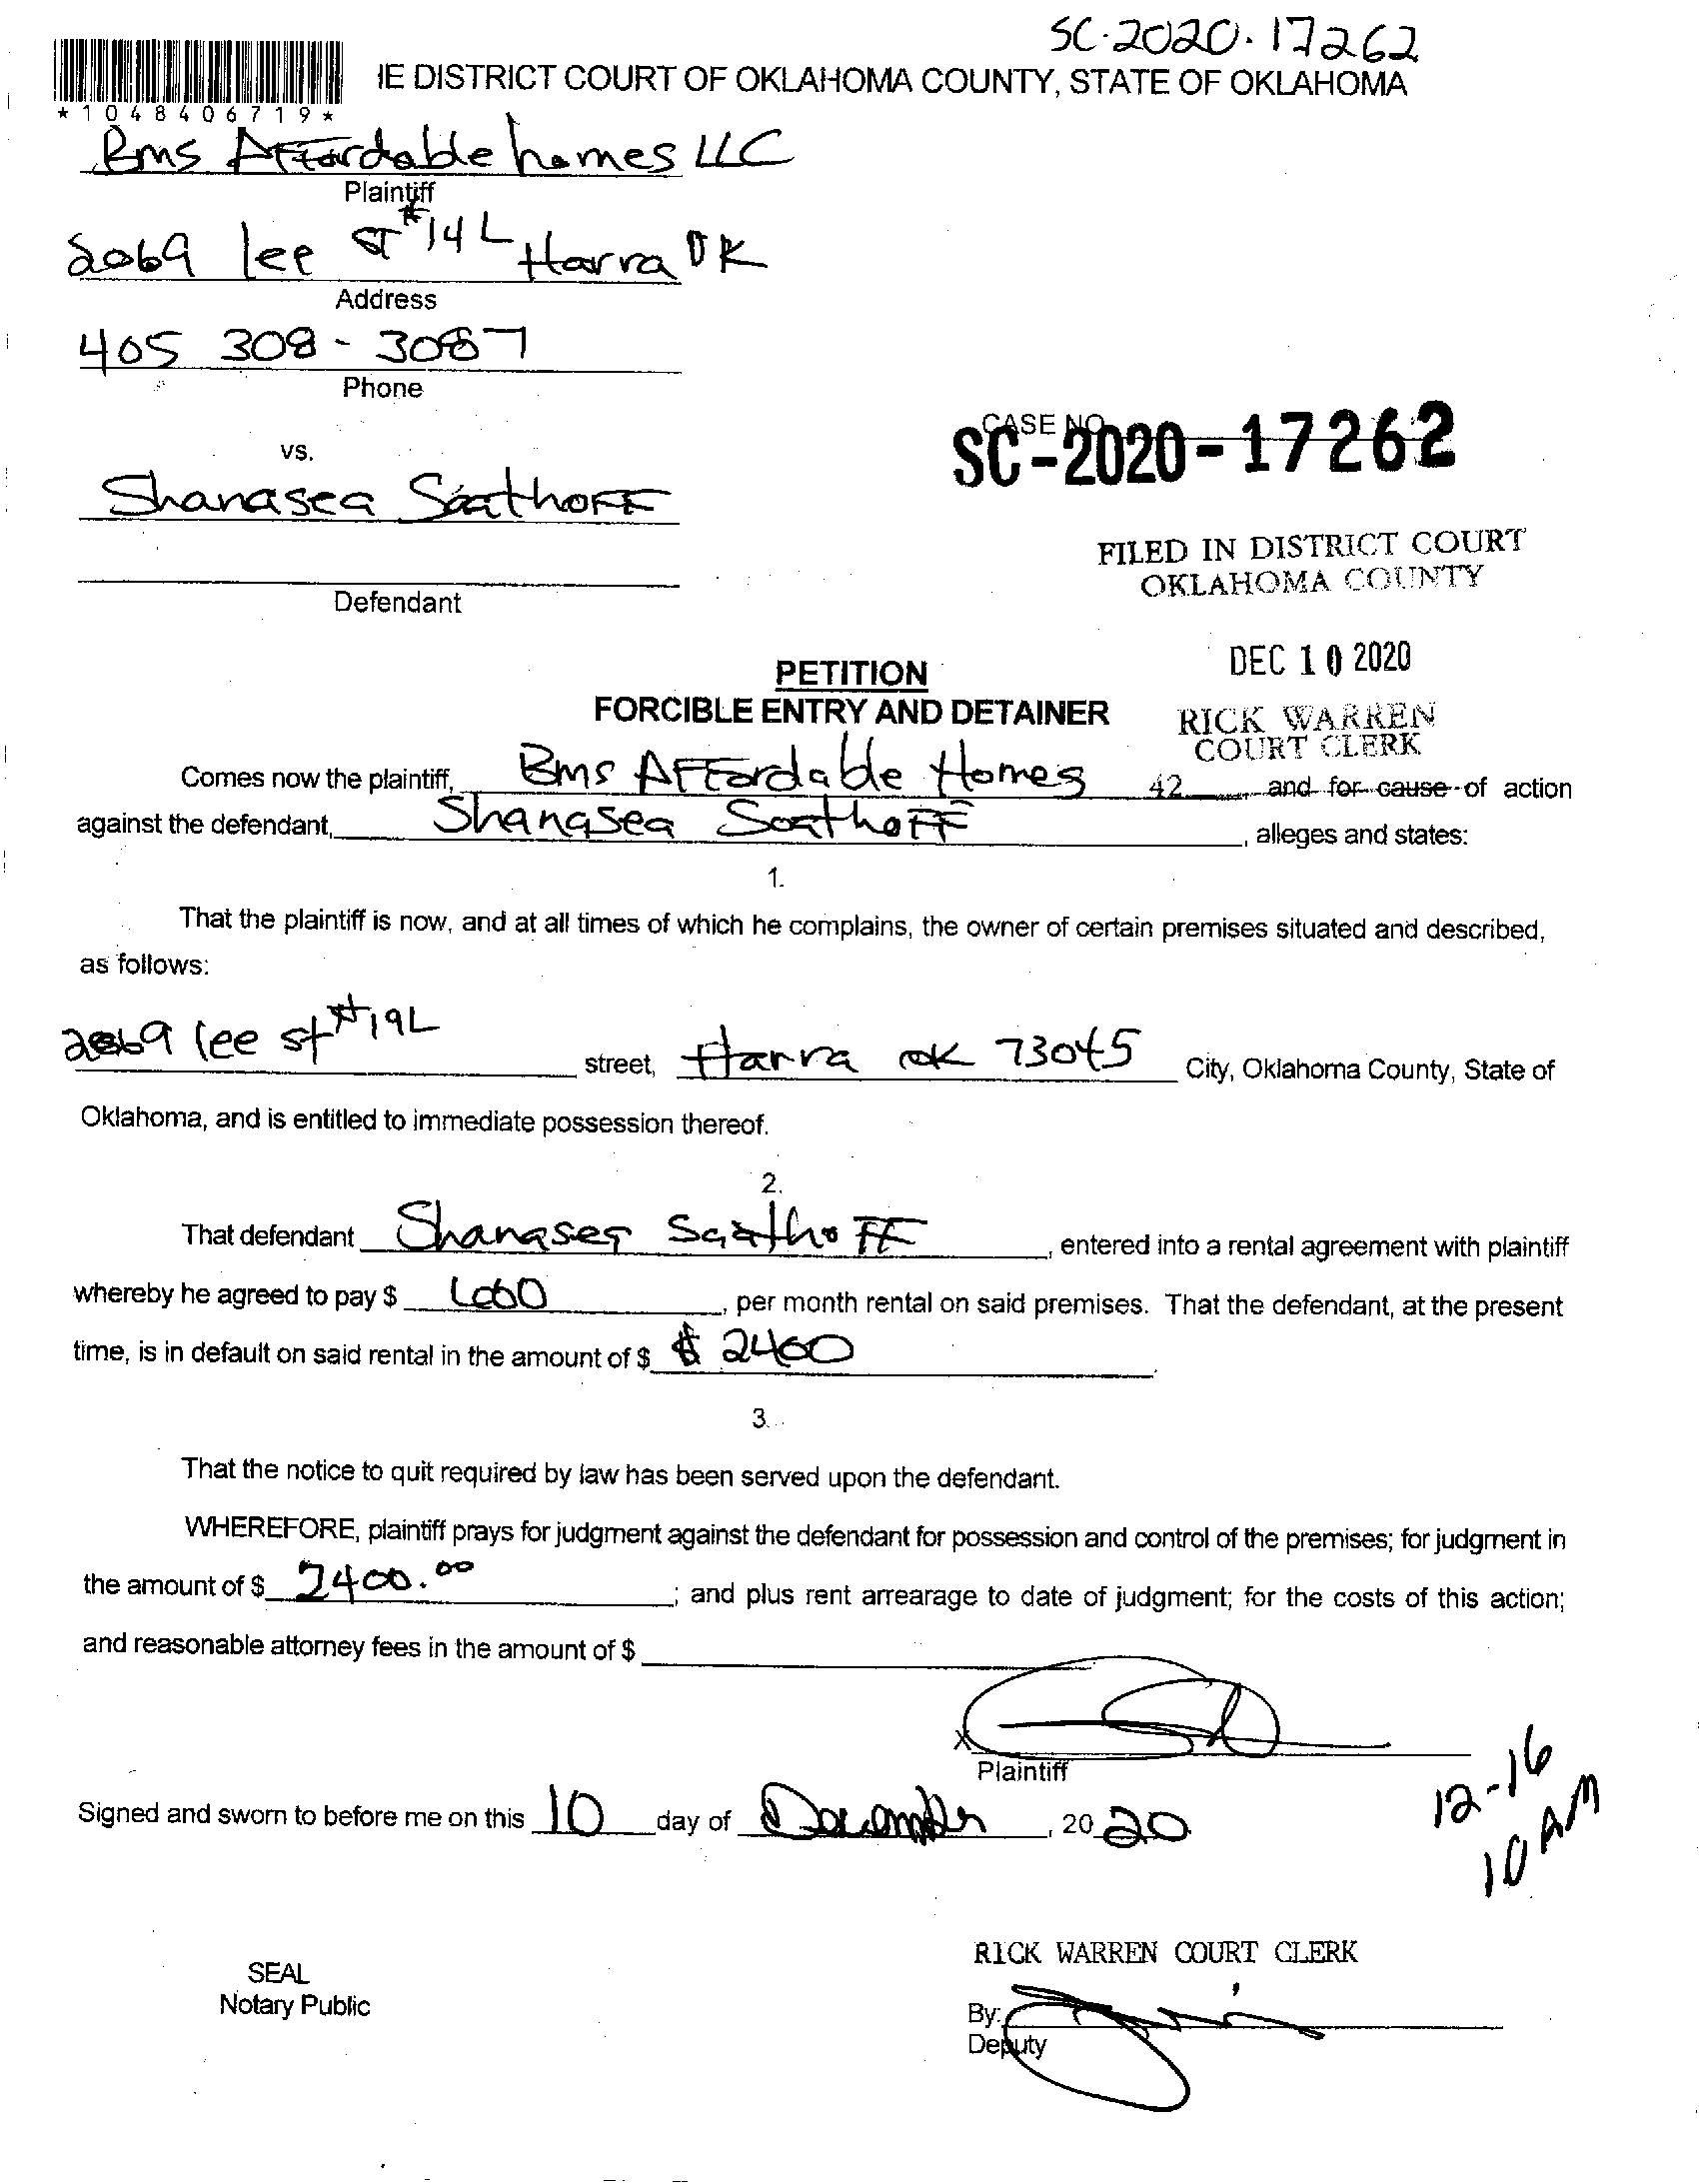 SC-2020-17262
IE DISTRICT COURT OF OKLAHOMA COUNTY, STATE OF OKLAHOMA
* 1 0 4 8 4 0 6 7 1 9 *
Bms Affordable homes LLC
Plaintiff
2069 lee ST #14L Harra OK
Address
405 308-3087
Phone
CASE NO.
SC-2020-17262
vs.
Shanasea Saathoff
FILED IN DISTRICT COURT
OKLAHOMA COUNTY
Defendant
DEC 10 2020
PETITION
FORCIBLE ENTRY AND DETAINER
RICK WARREN
COURT CLERK
Comes now the plaintiff, Bms Affordable Homes 42 and for cause of action
against the defendant, Shanasea Saathoff, alleges and states:
1.
That the plaintiff is now, and at all times of which he complains, the owner of certain premises situated and described,
as follows:
2069 lee st #19L street, Harra OK 73045 City, Oklahoma County, State of
Oklahoma, and is entitled to immediate possession thereof.
2.
That defendant Shanasea Saathoff, entered into a rental agreement with plaintiff
whereby he agreed to pay $ , per month rental on said premises. That the defendant, at the present
time, is in default on said rental in the amount of $ $ 2400.
3.
That the notice to quit required by law has been served upon the defendant.
WHEREFORE, plaintiff prays for judgment against the defendant for possession and control of the premises; for judgment in
the amount of $ 2400.00; and plus rent arrearage to date of judgment; for the costs of this action;
and reasonable attorney fees in the amount of $
X
Plaintiff
12-16
10 AM
Signed and sworn to before me on this 10 day of December, 2020
RICK WARREN COURT CLERK
SEAL
Notary Public
By:
Deputy